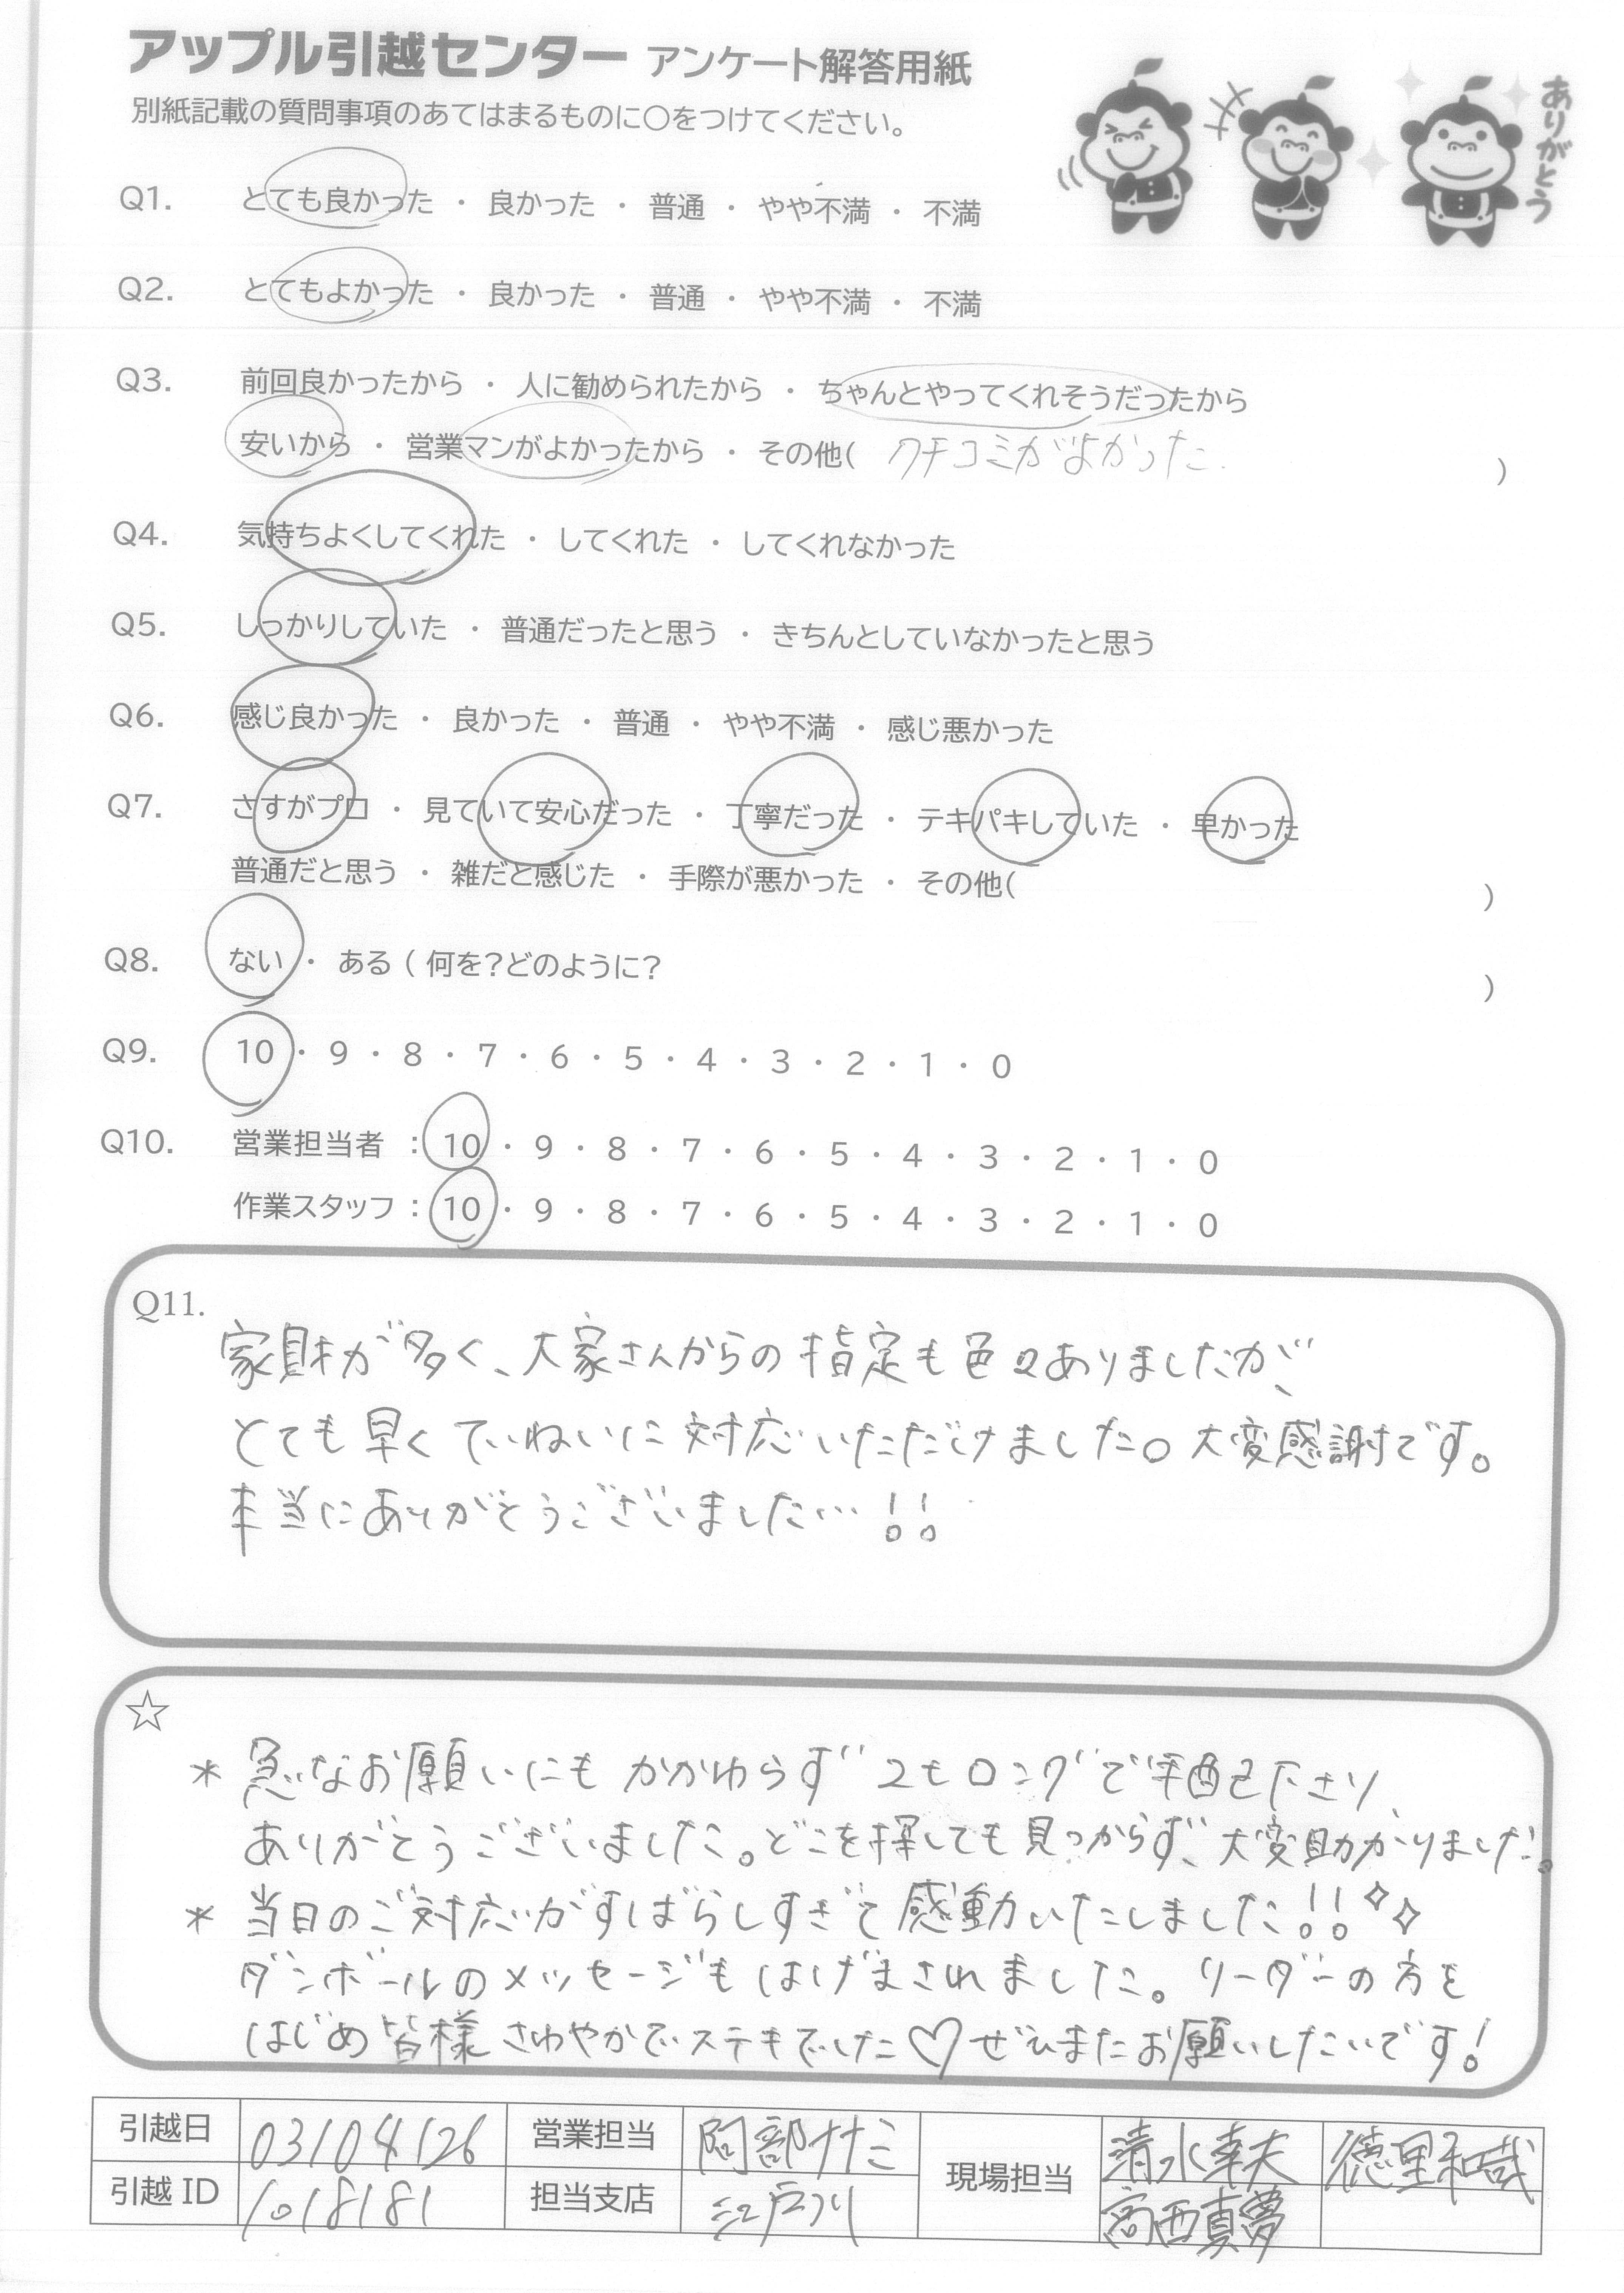 アップル引越センター アンケート解答用紙
別紙記載の質問事項のあてはまるものに○をつけてください。
ありがとう
Q1. とても良かった ・ 良かった ・ 普通 ・ やや不満 ・ 不満
Q2. とてもよかった ・ 良かった ・ 普通 ・ やや不満 ・ 不満
Q3. 前回良かったから ・ 人に勧められたから ・ ちゃんとやってくれそうだったから
安いから ・ 営業マンがよかったから ・ その他( クチコミがよかった. )
Q4. 気持ちよくしてくれた ・ してくれた ・ してくれなかった
Q5. しっかりしていた ・ 普通だったと思う ・ きちんとしていなかったと思う
Q6. 感じ良かった ・ 良かった ・ 普通 ・ やや不満 ・ 感じ悪かった
Q7. さすがプロ ・ 見ていて安心だった ・ 丁寧だった ・ テキパキしていた ・ 早かった
普通だと思う ・ 雑だと感じた ・ 手際が悪かった ・ その他( )
Q8. ない ・ ある ( 何を?どのように? )
Q9. 10 ・ 9 ・ 8 ・ 7 ・ 6 ・ 5 ・ 4 ・ 3 ・ 2 ・ 1 ・ 0
Q10. 営業担当者 : 10 ・ 9 ・ 8 ・ 7 ・ 6 ・ 5 ・ 4 ・ 3 ・ 2 ・ 1 ・ 0
作業スタッフ : 10 ・ 9 ・ 8 ・ 7 ・ 6 ・ 5 ・ 4 ・ 3 ・ 2 ・ 1 ・ 0
Q11.
家財が多く、大家さんからの指定も色々ありましたが、
とても早くていねいに対応いただけました。大変感謝です。
本当にありがとうございました…!!
☆
* 急なお願いにもかかわらず2tロングで手配下さり、
ありがとうございました。どこを探しても見つからず、大変助かりました。
* 当日のご対応がすばらしすぎて感動いたしました!!✧✧
ダンボールのメッセージもはげまされました。リーダーの方を
はじめ皆様さわやかでステキでした♡ぜひまたお願いしたいです!
引越日 03/04/26 営業担当 阿部ナミ 現場担当 清水幸夫 徳里和哉
引越ID 1018181 担当支店 江戸川 高西真夢